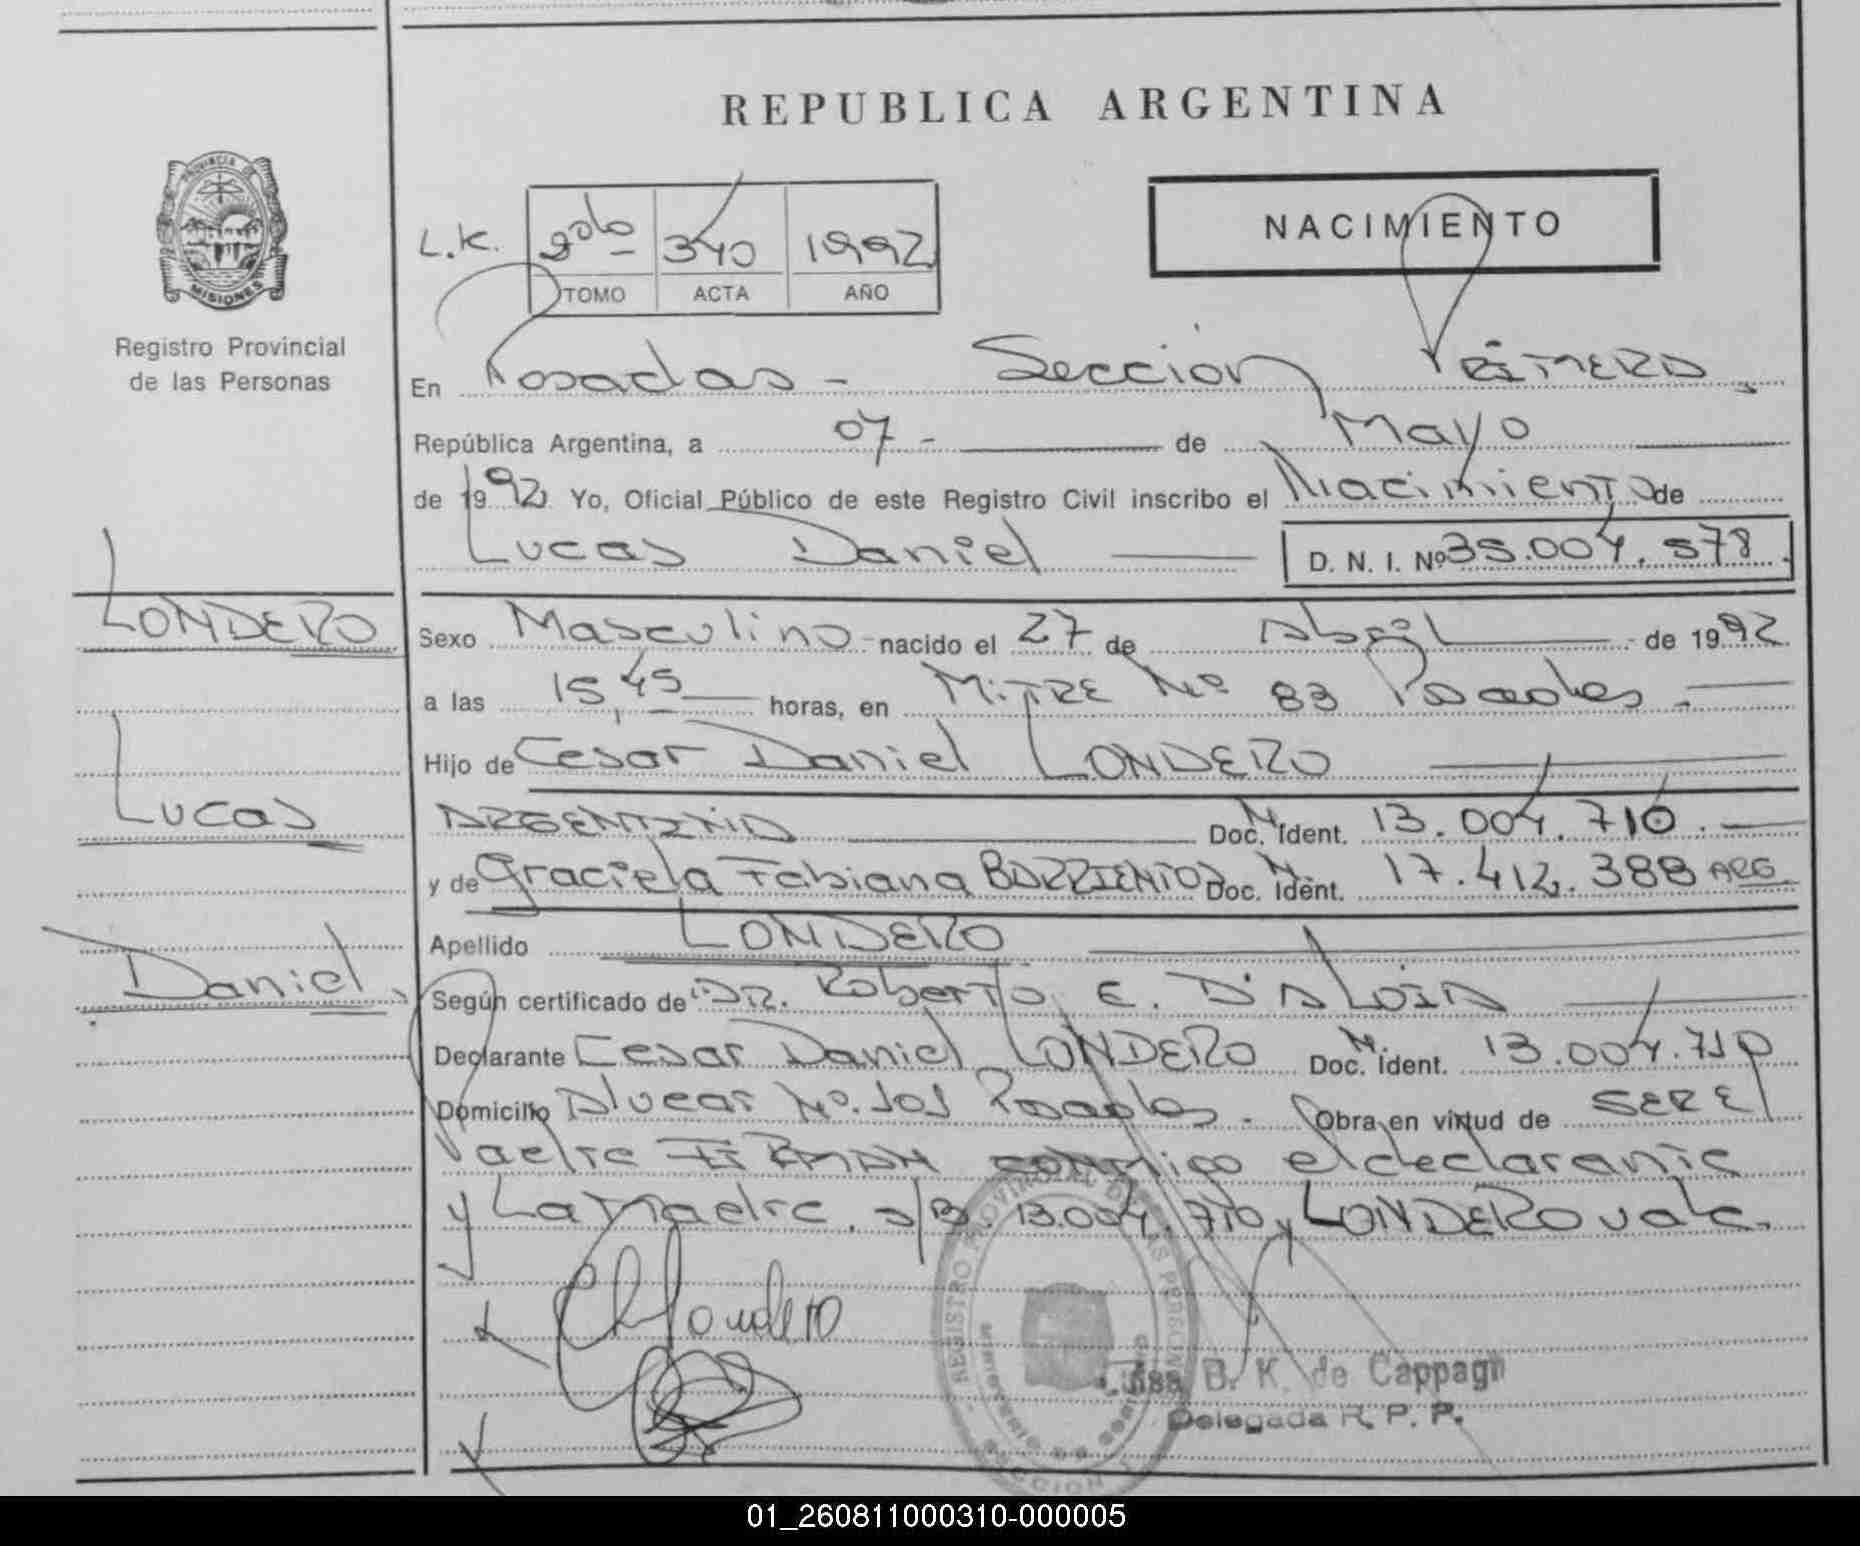 REPUBLICA ARGENTINA
PROVINCIA
MISIONES
Registro Provincial
de las Personas
NACIMIENTO
L.K. 2do 340 1992
TOMO ACTA AÑO
En Posadas - Seccion PRIMERA.
República Argentina, a 07 - de Mayo
de 1992 Yo, Oficial Público de este Registro Civil inscribo el Nacimiento de
Lucas Daniel D. N. I. Nº 35.004.578
LONDERO
Sexo Masculino nacido el 27 de Abril de 1992
a las 15,45 horas, en MITRE Nº 83 Posadas.
Hijo de Cesar Daniel LONDERO
Lucas
ARGENTINA Doc. N. Ident. 13.004.710.
y de Graciela Fabiana BARRIENTOS Doc. N. Ident. 17.412.388 ARG.
Apellido LONDERO
Daniel.
Según certificado de DR. Roberto E. D'ALOIA
Declarante Cesar Daniel LONDERO Doc. N. Ident. 13.004.710
Domicilio Alvear Nº. 101 Posadas. Obra en virtud de SER EL
Padre FIRMAN conmigo el declarante
y La Madre. s/B. 13.004.710 y LONDERO vale.
Londero
REGISTRO PROVINCIAL DE LAS PERSONAS
MINISTERIO DE GOBIERNO
SECCION
B. K. de Cappagli
Delegada R. P. P.
01_260811000310-000005